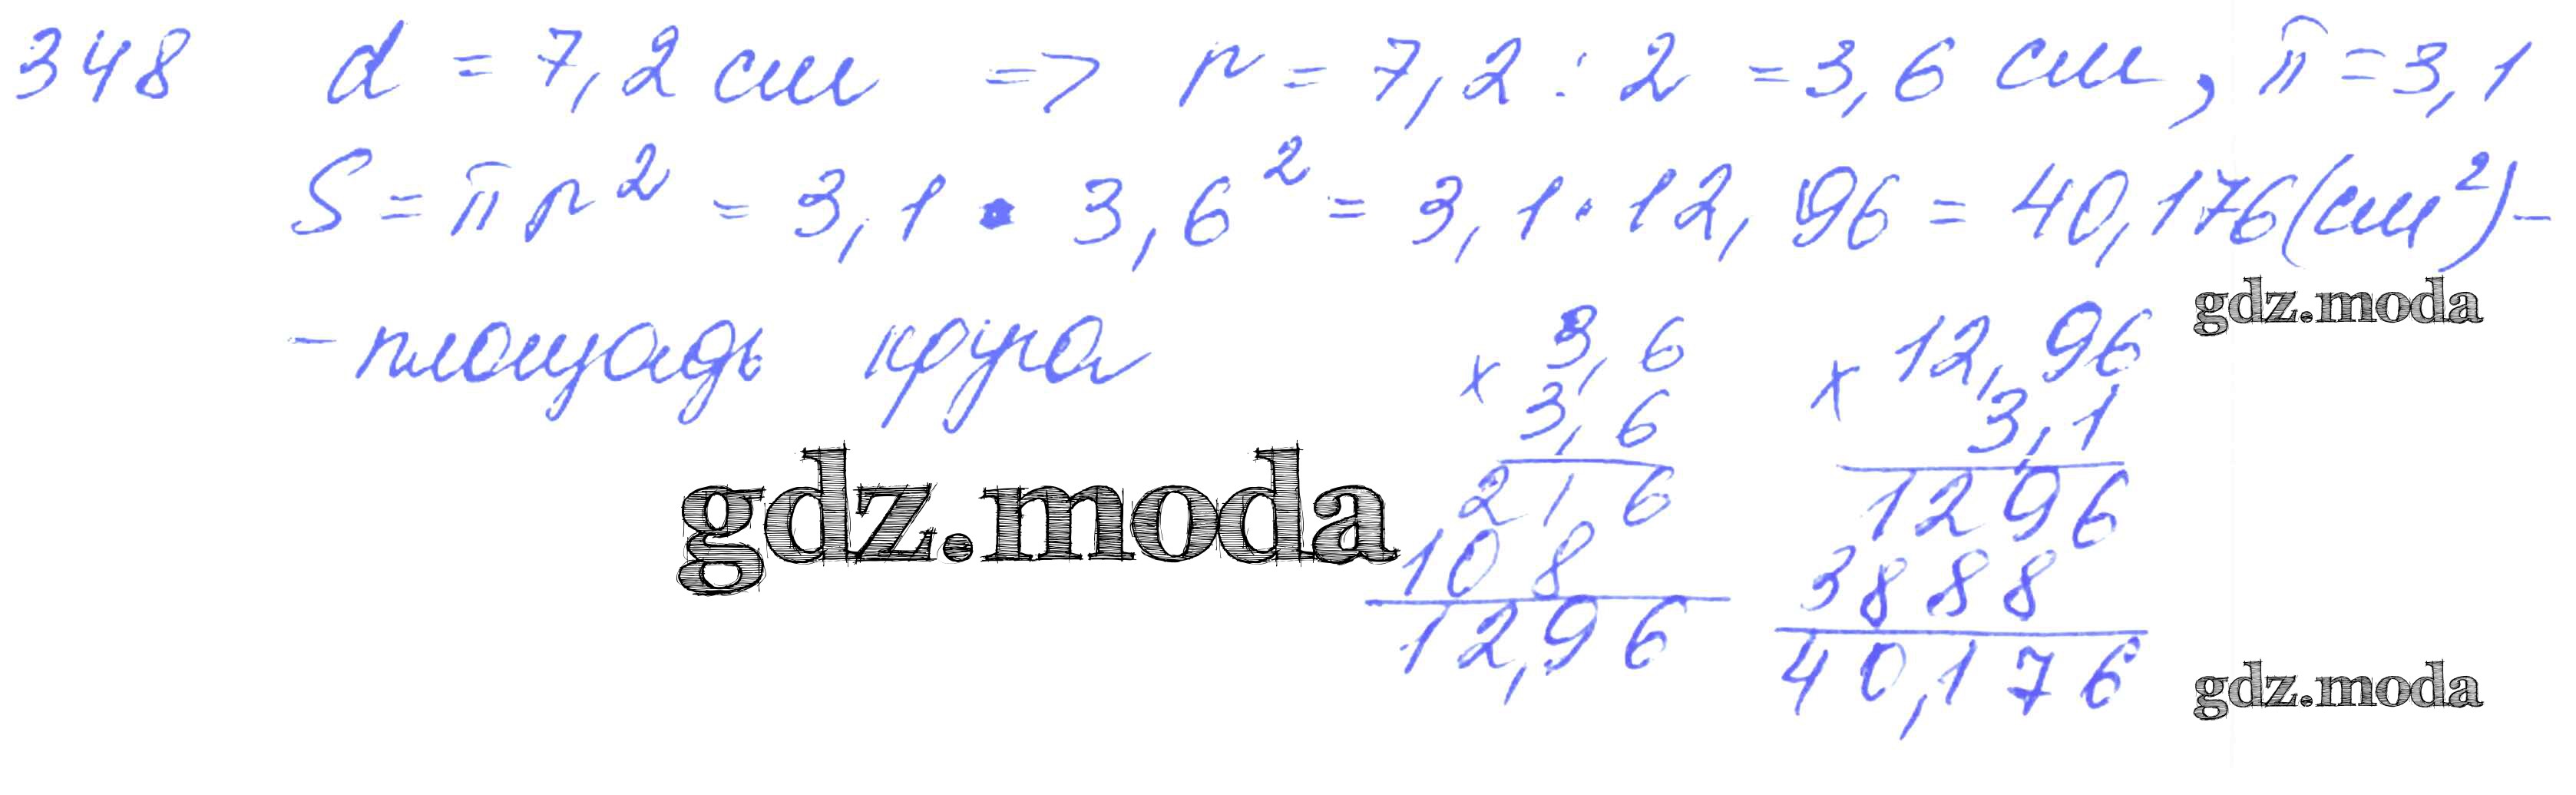 348 d = 7,2 см => r = 7,2 : 2 = 3,6 см, π = 3,1
S = πr² = 3,1 · 3,6² = 3,1 · 12,96 = 40,176 (см²) -
gdz.moda
- площадь круга
× 3,6
3,6
21 6
10 8
12,96
× 12,96
3,1
1296
3888
40,176
gdz.moda
gdz.moda